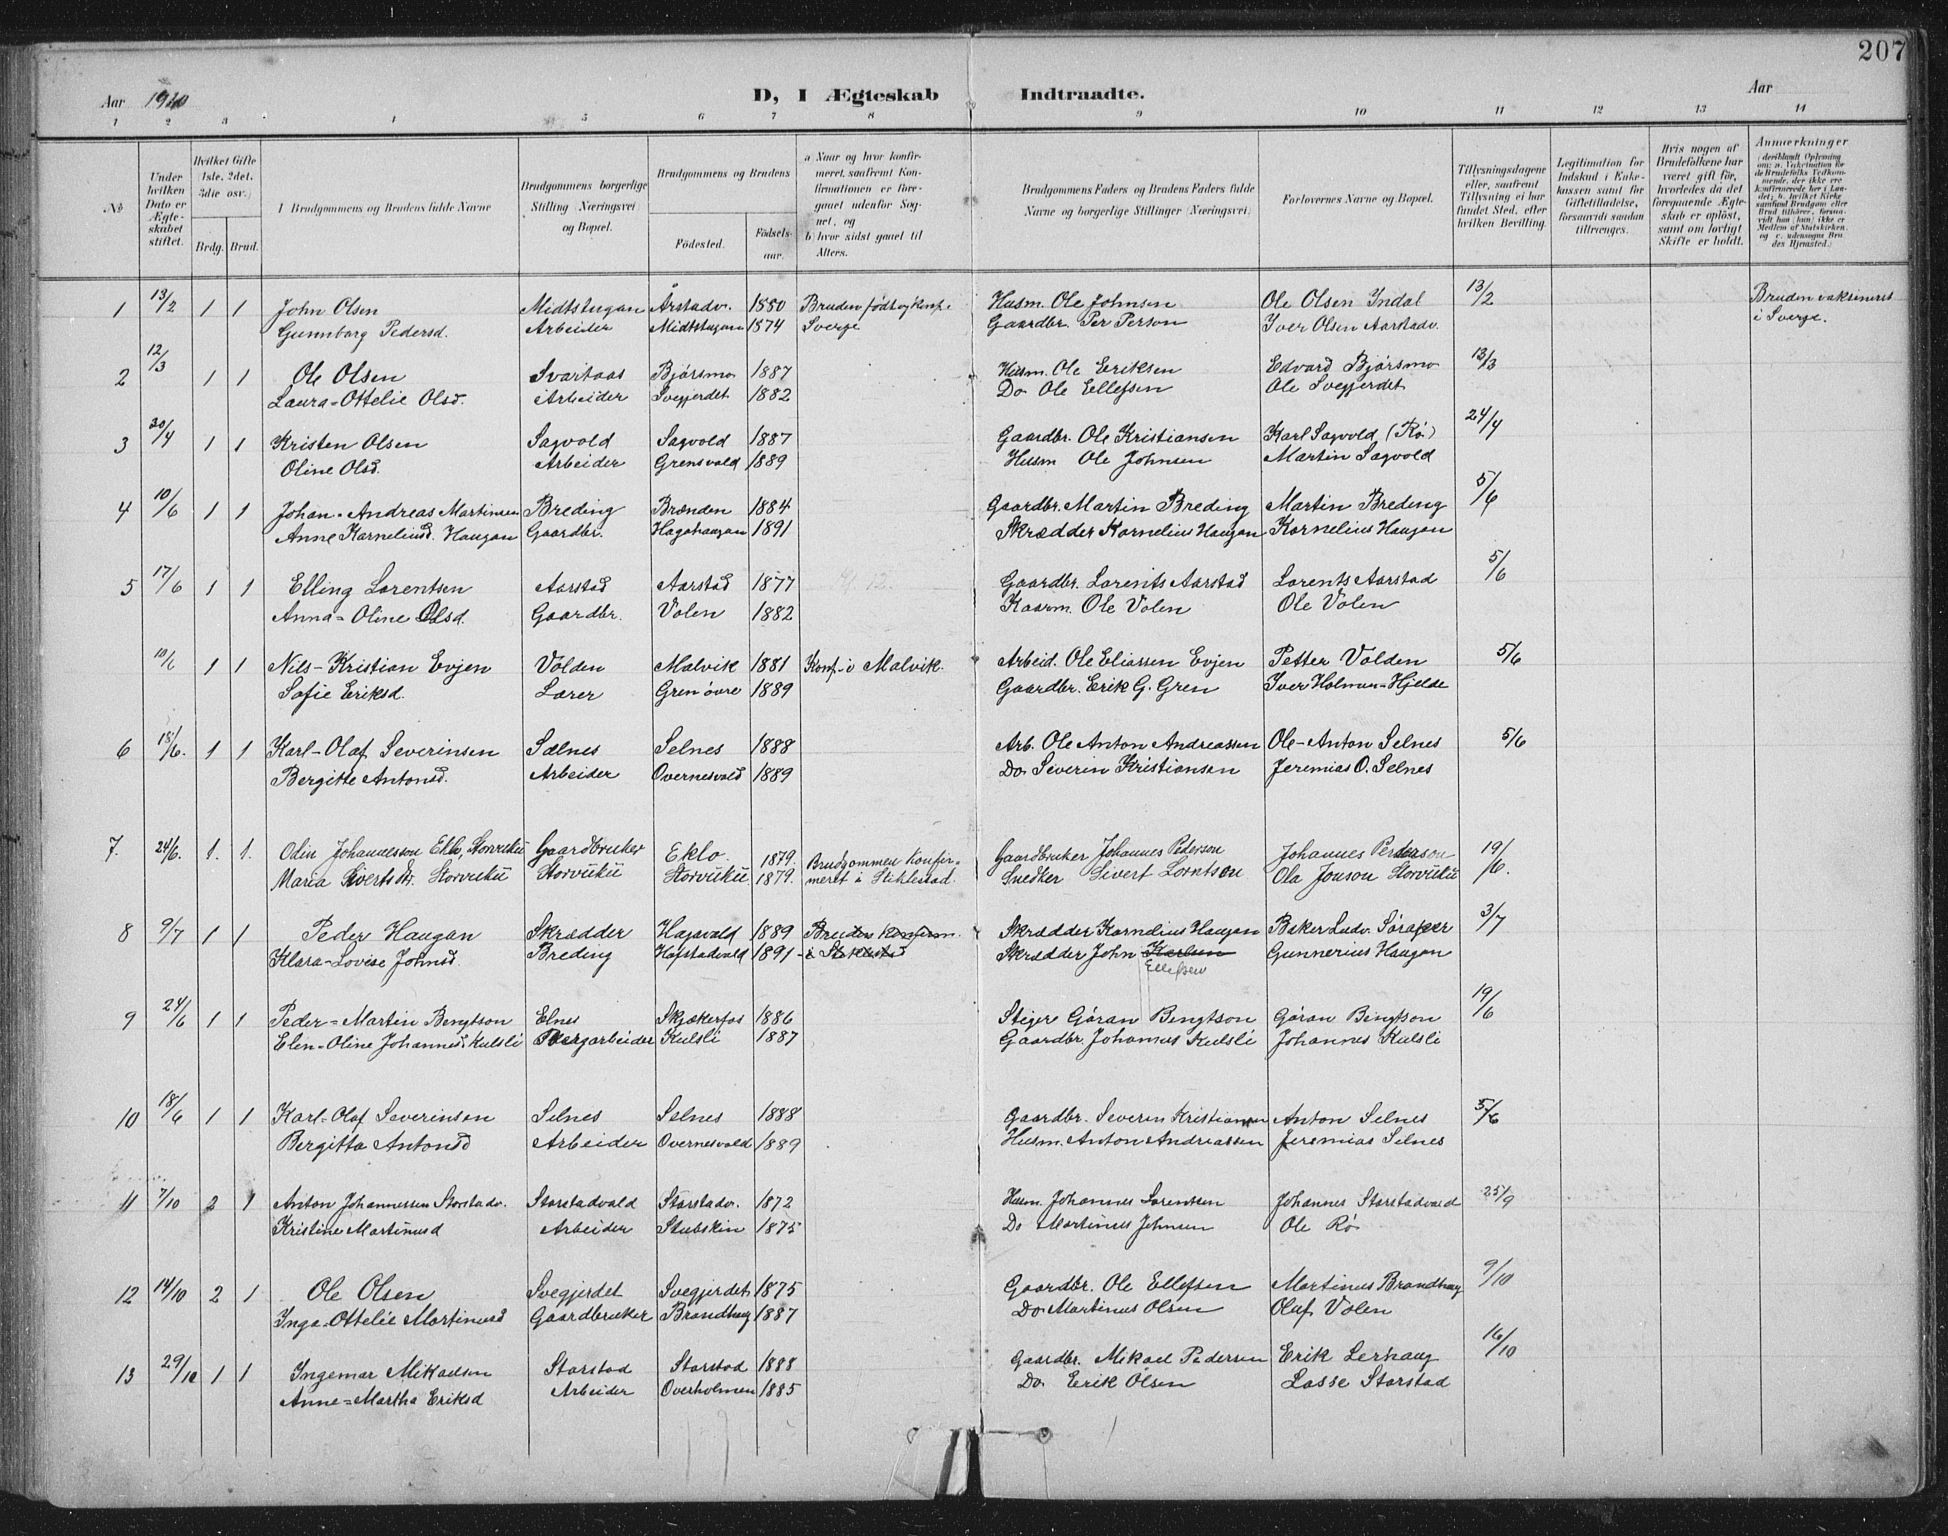 207
Aar 1910 D, I Ægteskab Indtraadte. Aar
1 2 3 4 5 6 7 8 9 10 11 12 13 14
No
Under hvilken Dato er Ægteskabet stiftet.
Hvilket Gifte (1ste, 2det, 3die osv.)
Brdg. Brud.
Brudgommens og Brudens fulde Navne
Brudgommens borgerlige Stilling (Næringsvei) og Bopæl.
Brudgommens og Brudens
Fødested. Fødselsaar.
a) Naar og hvor konfirmeret, saafremt Konfirmationen er foregaaet udenfor Sognet, og
b) hvor sidst gaaet til Alters.
Brudgommens Faders og Brudens Faders fulde Navne og borgerlige Stillinger (Næringsvei)
Forlovernes Navne og Bopæl.
Tillysningsdagene eller, saafremt Tillysning ei har fundet Sted, efter hvilken Bevilling.
Legitimation for Indskud i Enkekassen samt for Giftetilladelse, forsaavidt saadan tiltrænges.
Hvis nogen af Brudefolkene har været gift før, hvorledes da det foregaaende Ægteskab er opløst, samt om lovligt Skifte er holdt.
Anmærkninger
1 13/2 1 1 John Olsen Midtstugan Årstadv. 1880 Bruden født og konf. Husm. Ole Johnsen Ole Olsen Indal 13/2 Bruden vaksineret
Gunnborg Pedersd. Arbeider Midtstugan 1874 Sverge Gaardbr. Per Person Iver Olsen Aarstadv. i Sverge.
2 12/3 1 1 Ole Olsen Svartaas Bjørsmo 1887 Husm. Ole Eriksen Edvard Bjørsmo 13/3
Laura-Ottelie Olsd. Arbeider Svegjerdet 1882 Do Ole Ellefsen Ole Svegjerdet
3 20/4 1 1 Kristen Olsen Sagvold Sagvold 1887 Gaardbr. Ole Kristiansen Karl Sagvold (Rø) 24/4
Oline Olsd. Arbeider Grensvald 1889 Husm Ole Johnsen Martin Sagvold
4 10/6 1 1 Johan-Andreas Martinsen Breding Brænden 1884 Gaardbr. Martin Breding Martin Breding 5/6
Anne Karneliusd. Haugan Gaardbr. Hagahaugan 1891 Skrædder Kornelius Haugan Kornelius Haugan
5 17/6 1 1 Elling Lorentsen Aarstad Aarstad 1877 Gaardbr. Lorents Aarstad Lorents Aarstad 5/6
Anna-Oline Olsd. Gaardbr. Volen 1882 Ole Volen Ole Volen
10/6 1 1 Nils-Kristian Evjen Volden Malvik 1881 Konf. i Malvik. Arbeid. Ole Eliassen Evjen Petter Volden 5/6
Sofie Eriksd. Lærer Gren øvre 1889 Gaardbr. Erik G. Gren Iver Holmen-Hjelde
6 18/6. 1 1 Karl-Olaf Severinsen Sælnes Selnes 1888 Arb. Ole Anton Andreassen Ole-Anton Selnes 5/6
Bergitte Antonsd. Arbeider Overnesvald 1889 Do Severin Kristiansen Jeremias O. Selnes
7. 24/6. 1. 1. Odin Johannesson Eklo, Storvuku Gaardbruker Eklo. 1879. Brudgommen Konfir- Gaardbruker Johannes Pederson Johannes Pederson 19/6.
Maria Sivertsdt. Storvuku Storvuku Storvuku 1879. meret i Stiklestad. Snedker Sivert Lorntsen Ola Jonson Storvuku
8 9/7 1 1 Peder Haugan Skrædder Hagavald 1889 Bruden konfirm. Skrædder Kornelius Haugan Baker Ludv. Søraker 3/7
Klara-Lovise Johnsd. Breding Hofstadvald 1891 - i Stiklestad Skrædder John Karlsen Gunnerius Haugan
Ellefsen
9 24/6 1 1 Peder-Martin Bengtson Elnes Skjækerfos 1886 Stiger Gøran Bengtson Gøran Bengtson 19/6
Elen-Oline Johannesd. Kulsli Bergarbeider Kulsli 1887 Gaardbr. Johannes Kulsli Johannes Kulsli
10 18/6 1 1 Karl-Olaf Severinsen Selnes Selnes 1888 Gaardbr. Severin Kristiansen Anton Selnes 5/6
Bergitta Antonsd Arbeider Overnesvald 1889 Husm. Anton Andreassen Jeremias Selnes
11 7/10 2 1 Anton Johannessen Storstadv. Storstadvald Storstadv. 1872 Husm. Johannes Lorentsen Johannes Storstadvald 25/9
Kristine Martinusd Arbeider Stubskin 1875 Do Martinus Johnsen Ole Rø
12 14/10 2 1 Ole Olsen Svegjerdet Svegjerdet 1875 Gaardbr. Ole Ellefsen Martinus Brandhaug 9/10
Inga-Ottelie Martinusd Gaardbruker Brandhaug 1887 Do Martinus Olsen Oluf Volen
13 29/10 1 1 Ingemar Mikaelsen Storstad Storstad 1888 Gaardbr. Mikael Pedersen Erik Lerhaug 16/10
Anne-Martha Eriksd Arbeider Overholmen 1885 Do. Erik Olsen Lasse Storstad